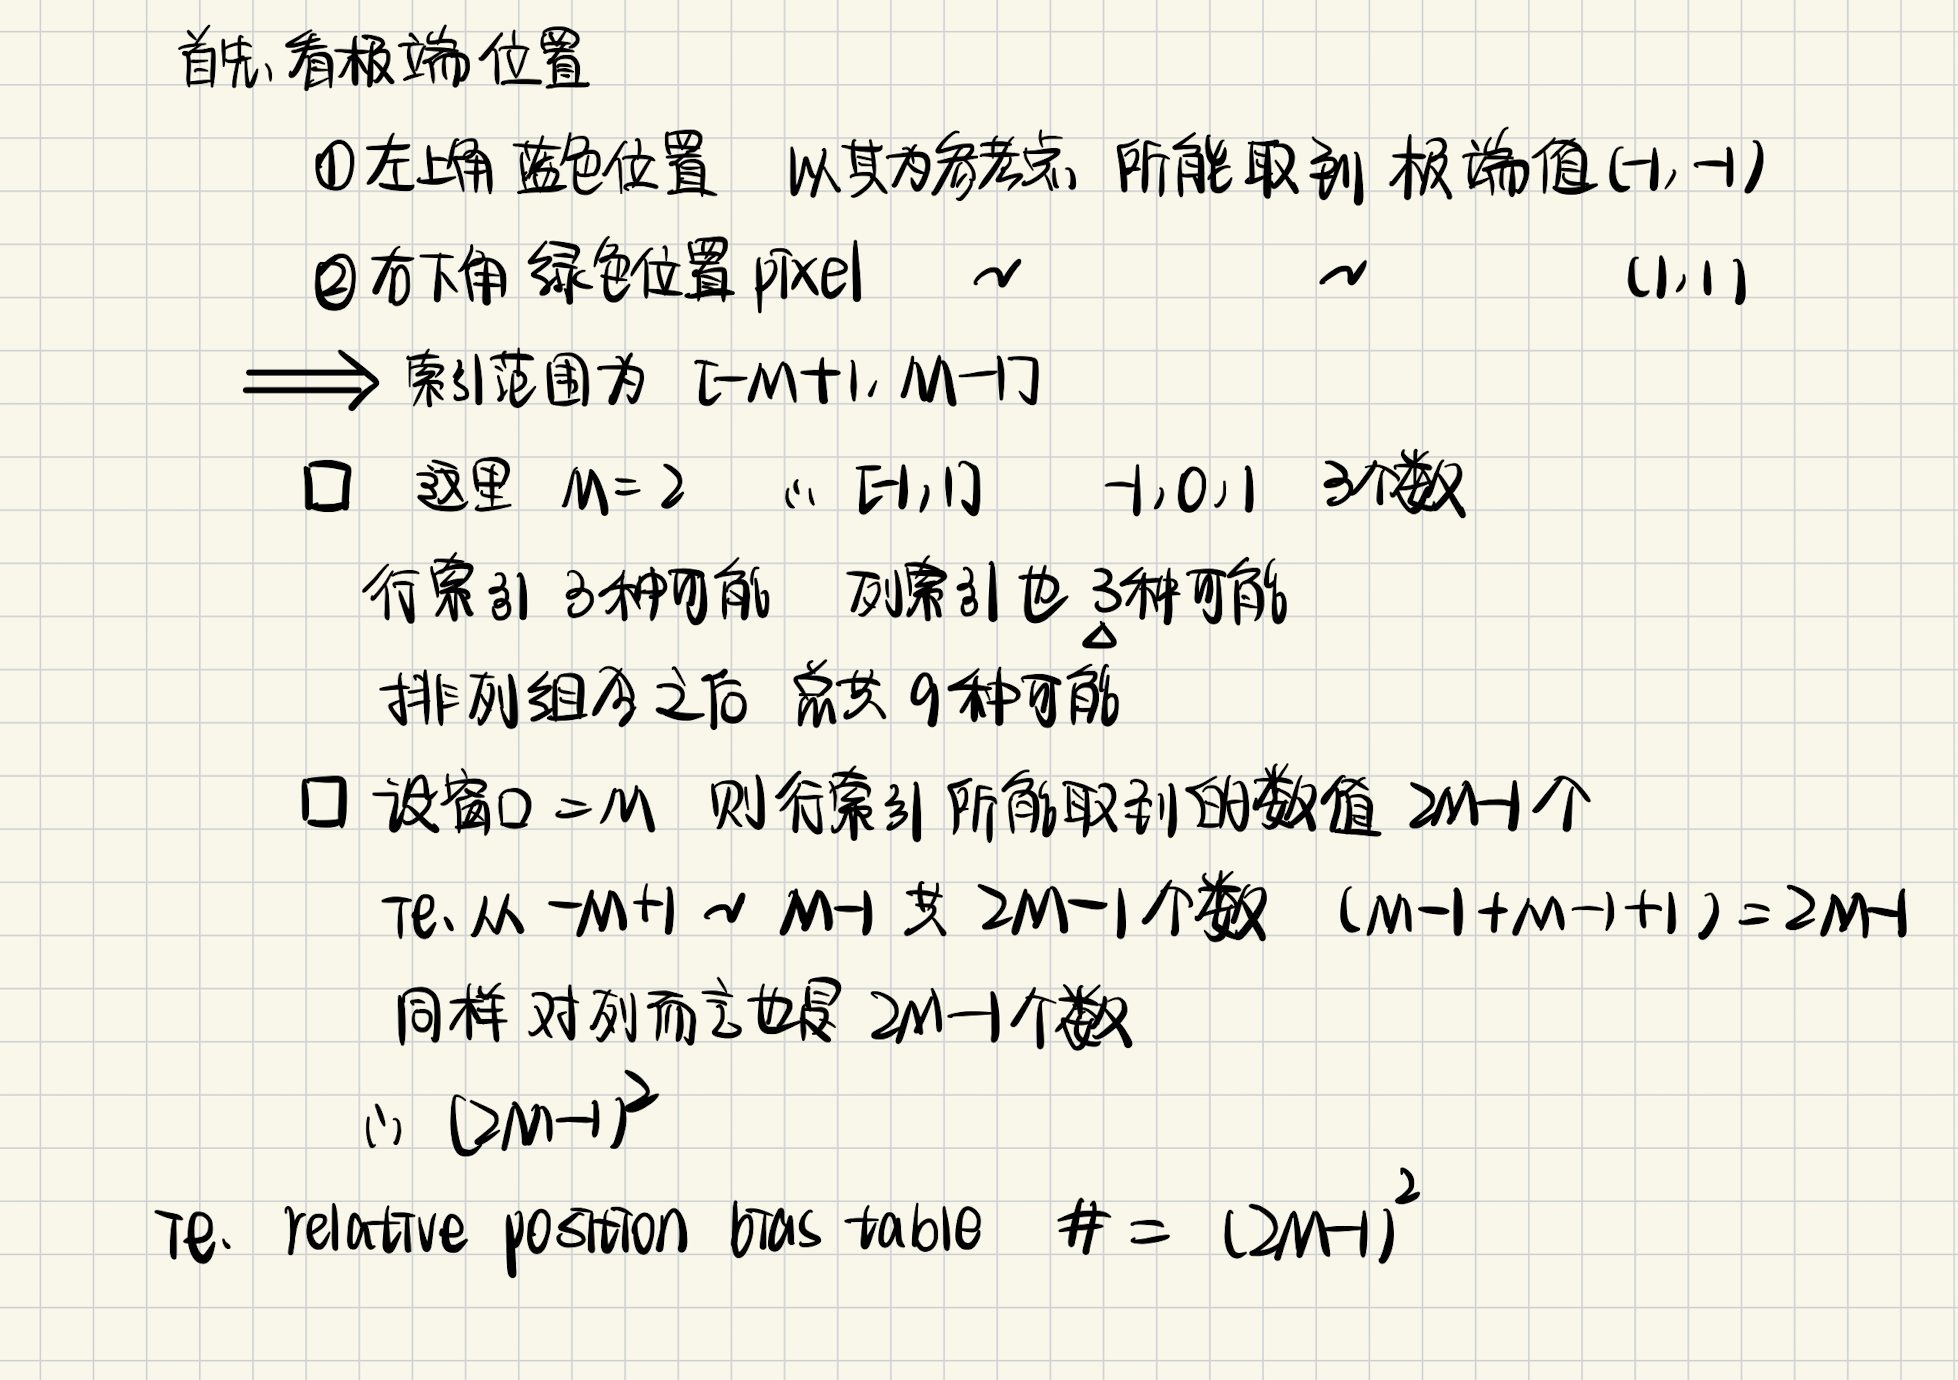 首先、看极端位置
① 左上角 蓝色位置 以其为参考点、所能取到 极端值(-1, -1)
② 右下角 绿色位置 pixel ~ ~ (1, 1)
⟹ 索引范围为 [-M+1, M-1]
□ 这里 M=2 ∴ [-1, 1] -1, 0, 1 3个数
行索引 3种可能 列索引也 3种可能
△
排列组合之后 总共 9种可能
□ 设窗口=M 则行索引所能取到的数值 2M-1个
Ie、从 -M+1 ~ M-1 共 2M-1个数 (M-1+M-1+1)=2M-1
同样对列而言也是 2M-1个数
∴ (2M-1)²
Ie. relative position bias table # = (2M-1)²